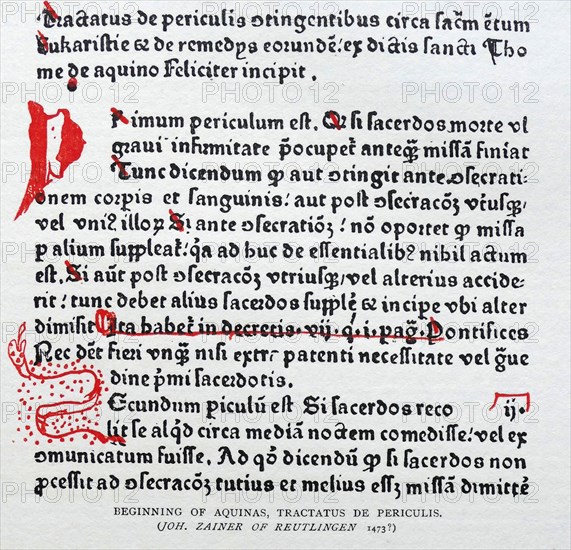 Tractatus de periculis ↄtingentibus circa sacm̄ētum
Eukaristie & de remedijs eorundē: ex dictis sancti Tho
me de aquino Feliciter incipit.
Primum periculum est. Qꝫ si sacerdos morte vl
graui infirmitate p̄ocupet̄ anteqꝫ missā finiat
Tunc dicendum ꝙ aut ↄtingit ante ↄsecrati⸗
onem corpis et sanguinis: aut post ↄsecracōꝫ vtrīusqꝫ,
vel vniꝰ illoꝝ Si ante ↄsecratiōꝫ: nō oportet ꝙ missa
ꝑ alium suppleat̄: q̄a ad huc de essentialibꝰ nihil actum
est. Si aūt post ↄsecracōꝫ vtriusqꝫ, vel alterius accide
rit: tunc debet alius sacerdos supplē & incipe vbi alter
dimisit Ita habet̄ in decretis. vij. q. i. pag. Pontifices
Nec dēt fieri vnqꝫ nisi extrꝰ patenti necessitate vel
dine p̄mi sacerdotis.
Secundum ꝑiculū est Si sacerdos reco ij.
lit se alqd circa mediā noctem comedisse: vel ex
omunicatum fuisse. Ad qō dicendū ꝙ si sacerdos non
ꝓcessit ad ↄsecracōꝫ tutius et melius essꝫ missā dimittē
BEGINNING OF AQUINAS, TRACTATUS DE PERICULIS.
(JOH. ZAINER OF REUTLINGEN 1473?)
PHOTO 12